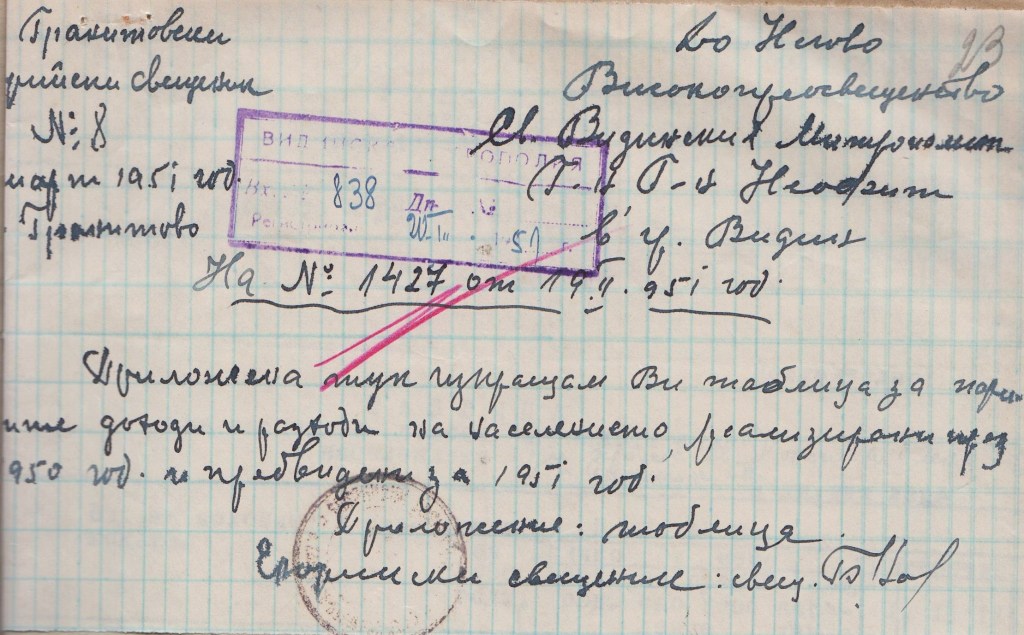 Гранитовски
рийски свещеник
№: 8
март 1951 год.
Гранитово
До Негово
Високопреосвещенство
Св. Видинския Митрополит
Г-н Г-н Неофит
в гр. Видин
23
838
На № 1427 от 19.II.951 год.
Приложена тук изпращам Ви таблица за пари-
ните доходи и разходи на населението, реализирани през
950 год. и предвидени за 1951 год.
Приложение: таблица.
Енорийски свещеник: свещ.